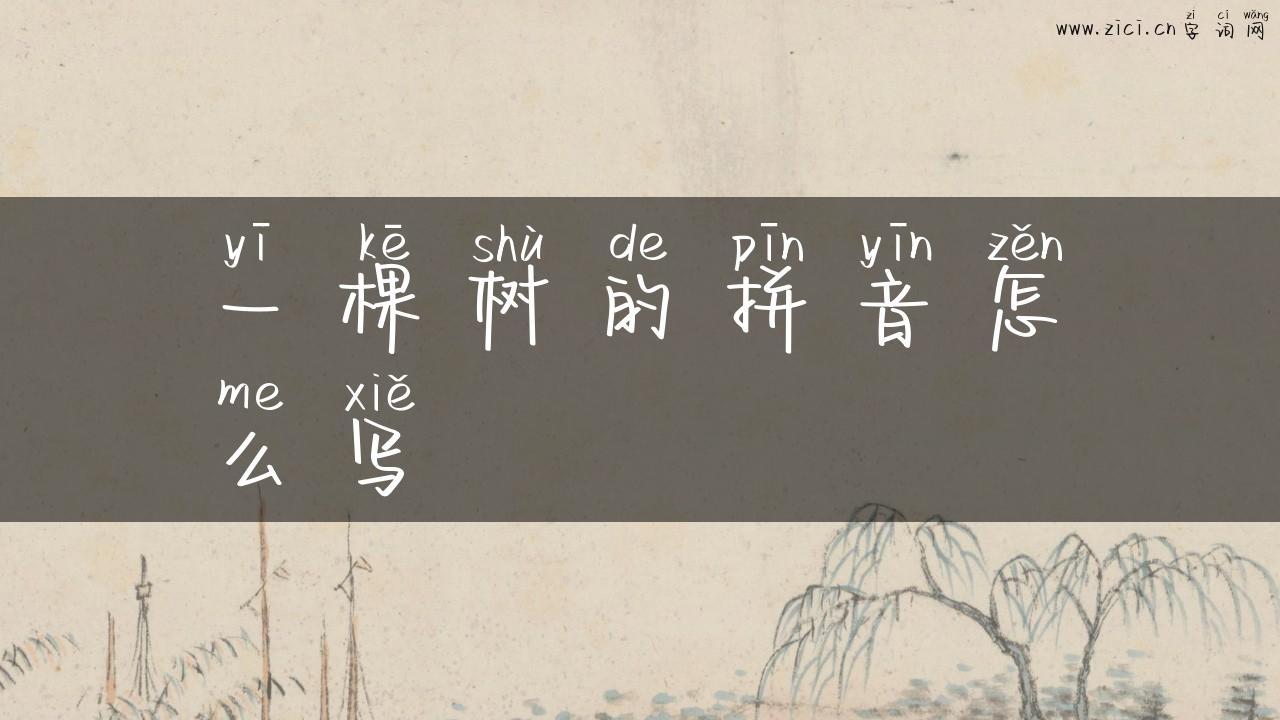 zì cí wǎng
www.zici.cn 字 词 网
yī kē shù de pīn yīn zěn
一 棵 树 的 拼 音 怎
me xiě
么 写